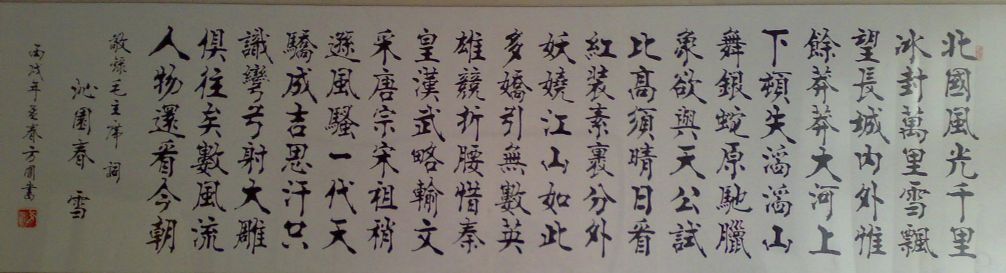 北國風光千里
冰封萬里雪飄
望長城内外惟
餘莽莽大河上
下頓失滔滔山
舞銀蛇原馳臘
象欲與天公試
比高須晴日看
紅装素裹分外
妖嬈江山如此
多嬌引無數英
雄競折腰惜秦
皇漢武略輸文
采唐宗宋祖稍
遜風騷一代天
驕成吉思汗只
識彎弓射大雕
俱往矣數風流
人物還看今朝
敬録毛主席詞
沁園春 雪
丙戌年春方書